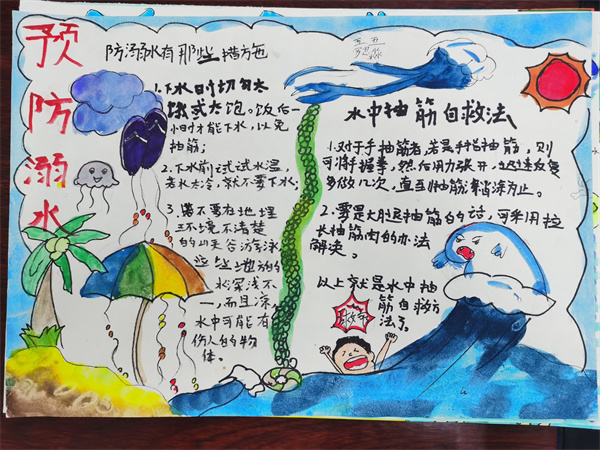 预防溺水
防溺水有那些措施
1.下水时切勿太
饿或太饱。饭后一
小时才能下水,以免
抽筋;
2.下水前试试水温,
若水太冷,就不要下水;
3.
不要在地理
环境不清楚
的山夹谷游泳
这些地方的
水深浅不
一,而且凉,
水中可能有
伤人的的物
体。
水中抽筋自救法
1.对于手抽筋者,若是手指抽筋,则
可将手握拳,然后用力张开,迅速反复
多做几次,直至抽筋消除为止。
2.要是大腿抽筋的的话,可采用拉
长抽筋肉的办法
解决。
以上就是水中抽
筋自救方
法了。
救命